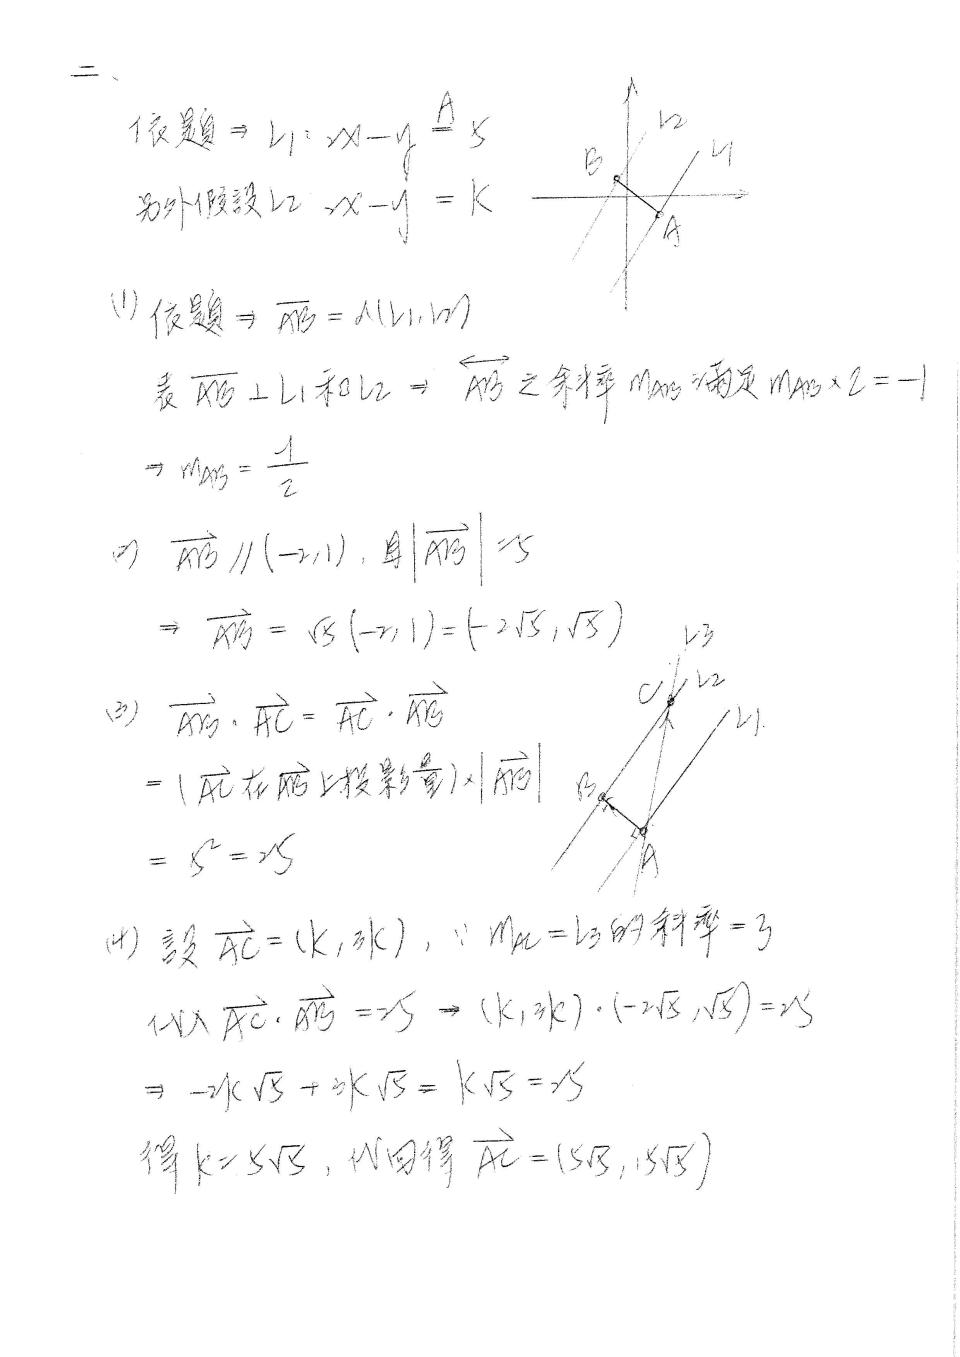 二、
依題 ⇒ L1: 2x-y A= 5
另外假設 L2 2x-y = k
L2
L1
B
A
(1) 依題 ⇒ AB = d(L1,L2)
表 AB ⊥ L1 和 L2 ⇒ AB 之斜率 mAB 滿足 mAB × 2 = -1
⇒ mAB = -1/2
(2) AB // (-2,1), 且 |AB| = 5
⇒ AB = √5 (-2,1) = (-2√5, √5)
(3) AB · AC = AC · AB
= (AC 在 AB 上投影量) × |AB|
= 5² = 25
L3
C
L2
L1
B
A
(4) 設 AC = (k, 3k), ∵ mAC = L3 的斜率 = 3
代入 AC · AB = 25 ⇒ (k, 3k) · (-2√5, √5) = 25
⇒ -2k√5 + 3k√5 = k√5 = 25
得 k = 5√5, 代回得 AC = (5√5, 15√5)